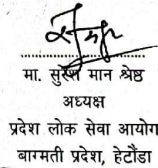 मा. सुरेश मान श्रेष्ठ
अध्यक्ष
प्रदेश लोक सेवा आयोग
बागमती प्रदेश, हेटौंडा